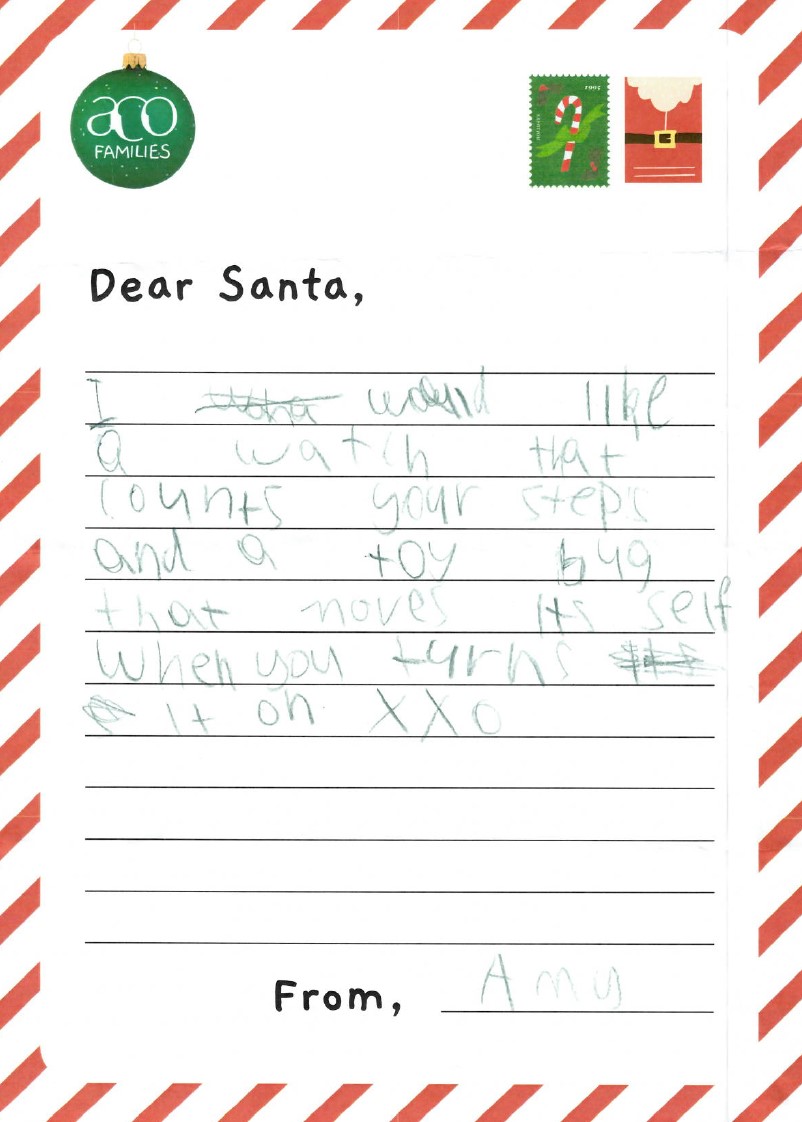 aco
FAMILIES
Dear Santa,
I would like
a watch that
counts your steps
and a toy bug
that noves its self
When you turns
it on XXO
From, Amy